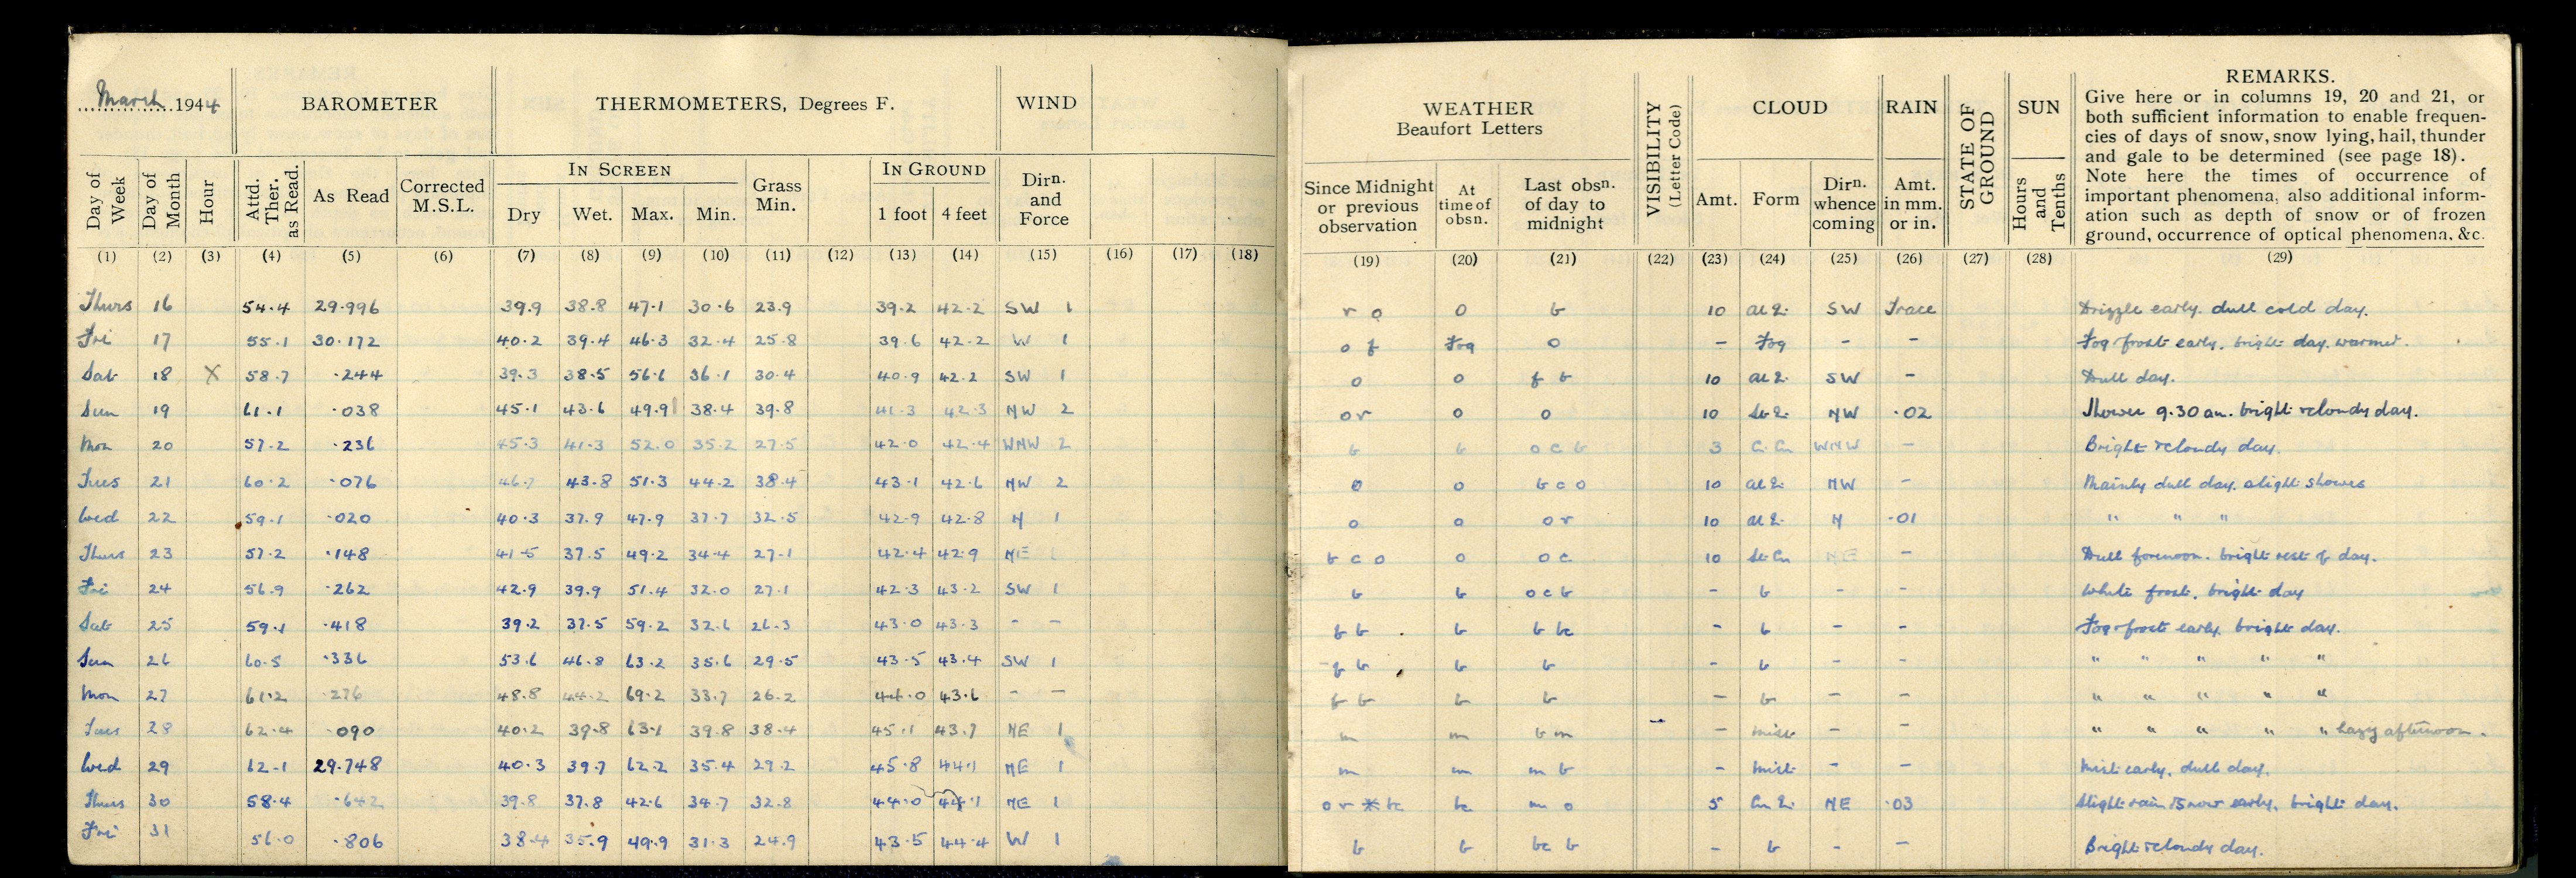 March 1944
BAROMETER
THERMOMETERS, Degrees F.
WIND
WEATHER
Beaufort Letters
VISIBILITY
(Letter Code)
CLOUD
RAIN
STATE OF
GROUND
SUN
REMARKS.
Give here or in columns 19, 20 and 21, or
both sufficient information to enable frequen-
cies of days of snow, snow lying, hail, thunder
and gale to be determined (see page 18).
Note here the times of occurrence of
important phenomena, also additional inform-
ation such as depth of snow or of frozen
ground, occurrence of optical phenomena, &c.
Day of Week
Day of Month
Hour
Attd. Ther. as Read.
As Read
Corrected M.S.L.
IN SCREEN
Dry Wet. Max. Min.
Grass Min.
IN GROUND
1 foot 4 feet
Dirn. and Force
Since Midnight or previous observation
At time of obsn.
Last obsn. of day to midnight
Amt. Form Dirn. whence coming
Amt. in mm. or in.
Hours and Tenths
(1) (2) (3) (4) (5) (6) (7) (8) (9) (10) (11) (12) (13) (14) (15) (16) (17) (18) (19) (20) (21) (22) (23) (24) (25) (26) (27) (28) (29)
Thurs 16 54.4 29.996 39.9 38.8 47.1 30.6 23.9 39.2 42.2 SW 1 r o o b 10 SW Trace Drizzle early. dull cold day.
Fri 17 55.1 30.172 40.2 39.4 46.3 32.4 25.8 39.6 42.2 W 1 o f Fog o - Fog - - Fog + frost early. bright day. warmer.
Sat 18 X 58.7 .244 39.3 38.5 56.1 36.1 30.4 40.9 42.2 SW 1 o o f b 10 SW - Dull day.
Sun 19 61.1 .038 45.1 43.6 49.9 38.4 39.8 41.3 42.3 NW 2 o r o o 10 NW .02 Shower 9.30 am. bright + cloudy day.
Mon 20 57.2 .236 45.3 41.3 52.0 35.2 27.5 42.0 42.4 WNW 2 b b o c b 3 WNW - Bright + cloudy day.
Tues 21 60.2 .076 46.7 43.8 51.3 44.2 38.4 43.1 42.6 NW 2 o o b c o 10 NW - Mainly dull day. slight showers
Wed 22 59.1 .020 40.3 37.9 47.9 37.7 32.5 42.9 42.8 N 1 o o o r 10 N .01 " " "
Thurs 23 57.2 .148 41.5 37.5 49.2 34.4 27.1 42.4 42.9 NE 1 b c o o o c 10 St Cu NE - Dull forenoon. bright rest of day.
Fri 24 56.9 .262 42.9 39.9 51.4 32.0 27.1 42.3 43.2 SW 1 b b o c b - b - - White frost. bright day
Sat 25 59.1 .418 39.2 37.5 59.2 32.6 26.3 43.0 43.3 - - f b b b bc - b - - Fog + frost early. bright day.
Sun 26 60.5 .336 53.6 46.8 63.2 35.6 29.5 43.5 43.4 SW 1 f b b b - b - - " " " " "
Mon 27 61.2 .276 48.8 44.2 69.2 33.7 26.2 44.0 43.6 - - f b b b - b - - " " " " "
Tues 28 62.4 .090 40.2 39.8 63.1 39.8 38.4 45.1 43.7 NE 1 m m b m - mist - - " " " " " hazy afternoon.
Wed 29 62.1 29.748 40.3 39.7 62.2 35.4 29.2 45.8 44.1 NE 1 m m m b - mist - - Mist early. dull day.
Thurs 30 58.4 .642 39.8 37.8 42.6 34.7 32.8 44.0 44.1 NE 1 o r * bc bc m o 5 NE .03 Slight rain + snow early. bright day.
Fri 31 56.0 .806 38.4 35.9 49.9 31.3 24.9 43.5 44.4 W 1 b b bc b - b - - Bright + cloudy day.